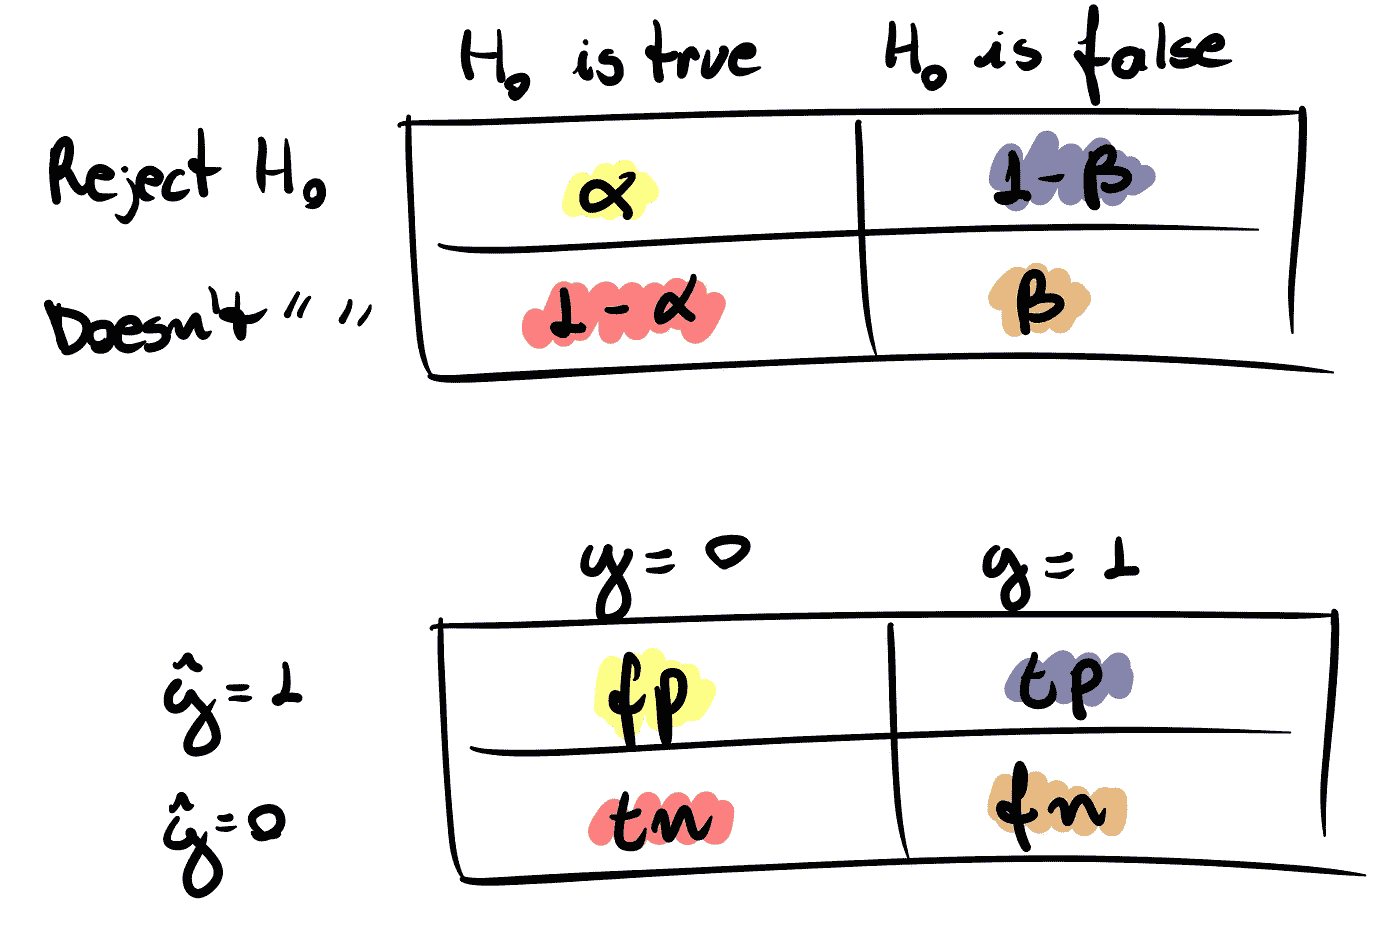 H₀ is true H₀ is false
Reject H₀ α 1-β
Doesn't " " 1-α β
y=0 y=1
ŷ=1 fp tp
ŷ=0 tn fn